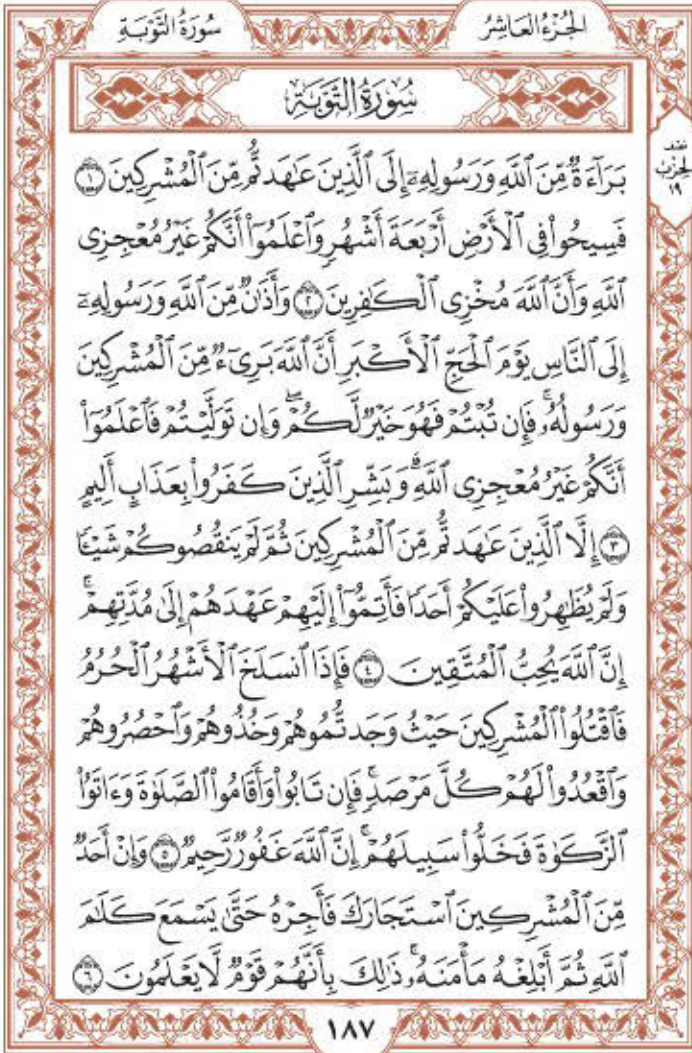 سُورَةُ التَّوْبَةِ
الجُزْءُ العَاشِرُ
سُورَةُ التَّوْبَةِ
بَرَآءَةٌ مِّنَ ٱللَّهِ وَرَسُولِهِۦٓ إِلَى ٱلَّذِينَ عَٰهَدتُّم مِّنَ ٱلْمُشْرِكِينَ ١
فَسِيحُوا۟ فِى ٱلْأَرْضِ أَرْبَعَةَ أَشْهُرٍ وَٱعْلَمُوٓا۟ أَنَّكُمْ غَيْرُ مُعْجِزِى
ٱللَّهِ وَأَنَّ ٱللَّهَ مُخْزِى ٱلْكَٰفِرِينَ ٢ وَأَذَٰنٌ مِّنَ ٱللَّهِ وَرَسُولِهِۦٓ
إِلَى ٱلنَّاسِ يَوْمَ ٱلْحَجِّ ٱلْأَكْبَرِ أَنَّ ٱللَّهَ بَرِىٓءٌ مِّنَ ٱلْمُشْرِكِينَ
وَرَسُولُهُۥۚ فَإِن تُبْتُمْ فَهُوَ خَيْرٌ لَّكُمْۖ وَإِن تَوَلَّيْتُمْ فَٱعْلَمُوٓا۟
أَنَّكُمْ غَيْرُ مُعْجِزِى ٱللَّهِۗ وَبَشِّرِ ٱلَّذِينَ كَفَرُوا۟ بِعَذَابٍ أَلِيمٍ
٣ إِلَّا ٱلَّذِينَ عَٰهَدتُّم مِّنَ ٱلْمُشْرِكِينَ ثُمَّ لَمْ يَنقُصُوكُمْ شَيْـًٔا
وَلَمْ يُظَٰهِرُوا۟ عَلَيْكُمْ أَحَدًا فَأَتِمُّوٓا۟ إِلَيْهِمْ عَهْدَهُمْ إِلَىٰ مُدَّتِهِمْۚ
إِنَّ ٱللَّهَ يُحِبُّ ٱلْمُتَّقِينَ ٤ فَإِذَا ٱنسَلَخَ ٱلْأَشْهُرُ ٱلْحُرُمُ
فَٱقْتُلُوا۟ ٱلْمُشْرِكِينَ حَيْثُ وَجَدتُّمُوهُمْ وَخُذُوهُمْ وَٱحْصُرُوهُمْ
وَٱقْعُدُوا۟ لَهُمْ كُلَّ مَرْصَدٍۚ فَإِن تَابُوا۟ وَأَقَامُوا۟ ٱلصَّلَوٰةَ وَءَاتَوُا۟
ٱلزَّكَوٰةَ فَخَلُّوا۟ سَبِيلَهُمْۚ إِنَّ ٱللَّهَ غَفُورٌ رَّحِيمٌ ٥ وَإِنْ أَحَدٌ
مِّنَ ٱلْمُشْرِكِينَ ٱسْتَجَارَكَ فَأَجِرْهُ حَتَّىٰ يَسْمَعَ كَلَٰمَ
ٱللَّهِ ثُمَّ أَبْلِغْهُ مَأْمَنَهُۥۚ ذَٰلِكَ بِأَنَّهُمْ قَوْمٌ لَّا يَعْلَمُونَ ٦
١٨٧
الحزب
١٩